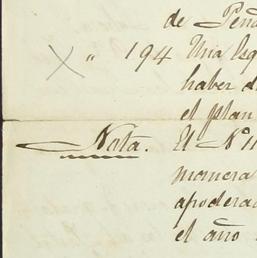 de Peñ
" 194 Una Esq
haber d
el plan
Nota. El Nº 11
manera
apoderad
el año